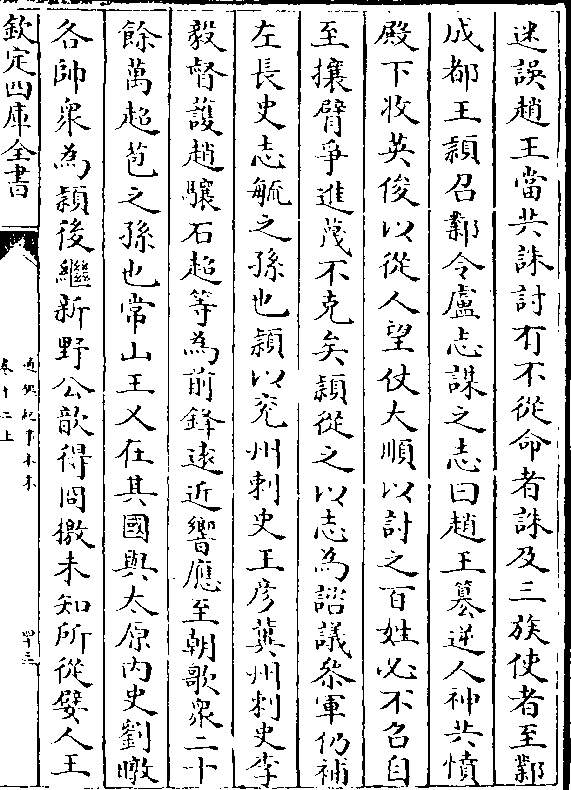 迷誤趙王當共誅討有不從命者誅及三族使者至鄴
成都王穎召鄴令盧志謀之志曰趙王簒逆人神共憤
殿下收英俊以從人望仗大順以討之百姓必不召自
至攘臂爭進蔑不克矣穎從之以志為諮議叅軍仍補
左長史志毓之孫也穎以兖州刺史王彦冀州刺史李
毅督護趙驤石超等為前鋒逺近響應至朝歌衆二十
餘萬超苞之孫也常山王乂在其國與太原内史劉暾
各帥衆為穎後繼新野公歆得冏檄未知所從嬖人王
欽定四庫全書
通鑑紀事本末
卷十二上
四十三